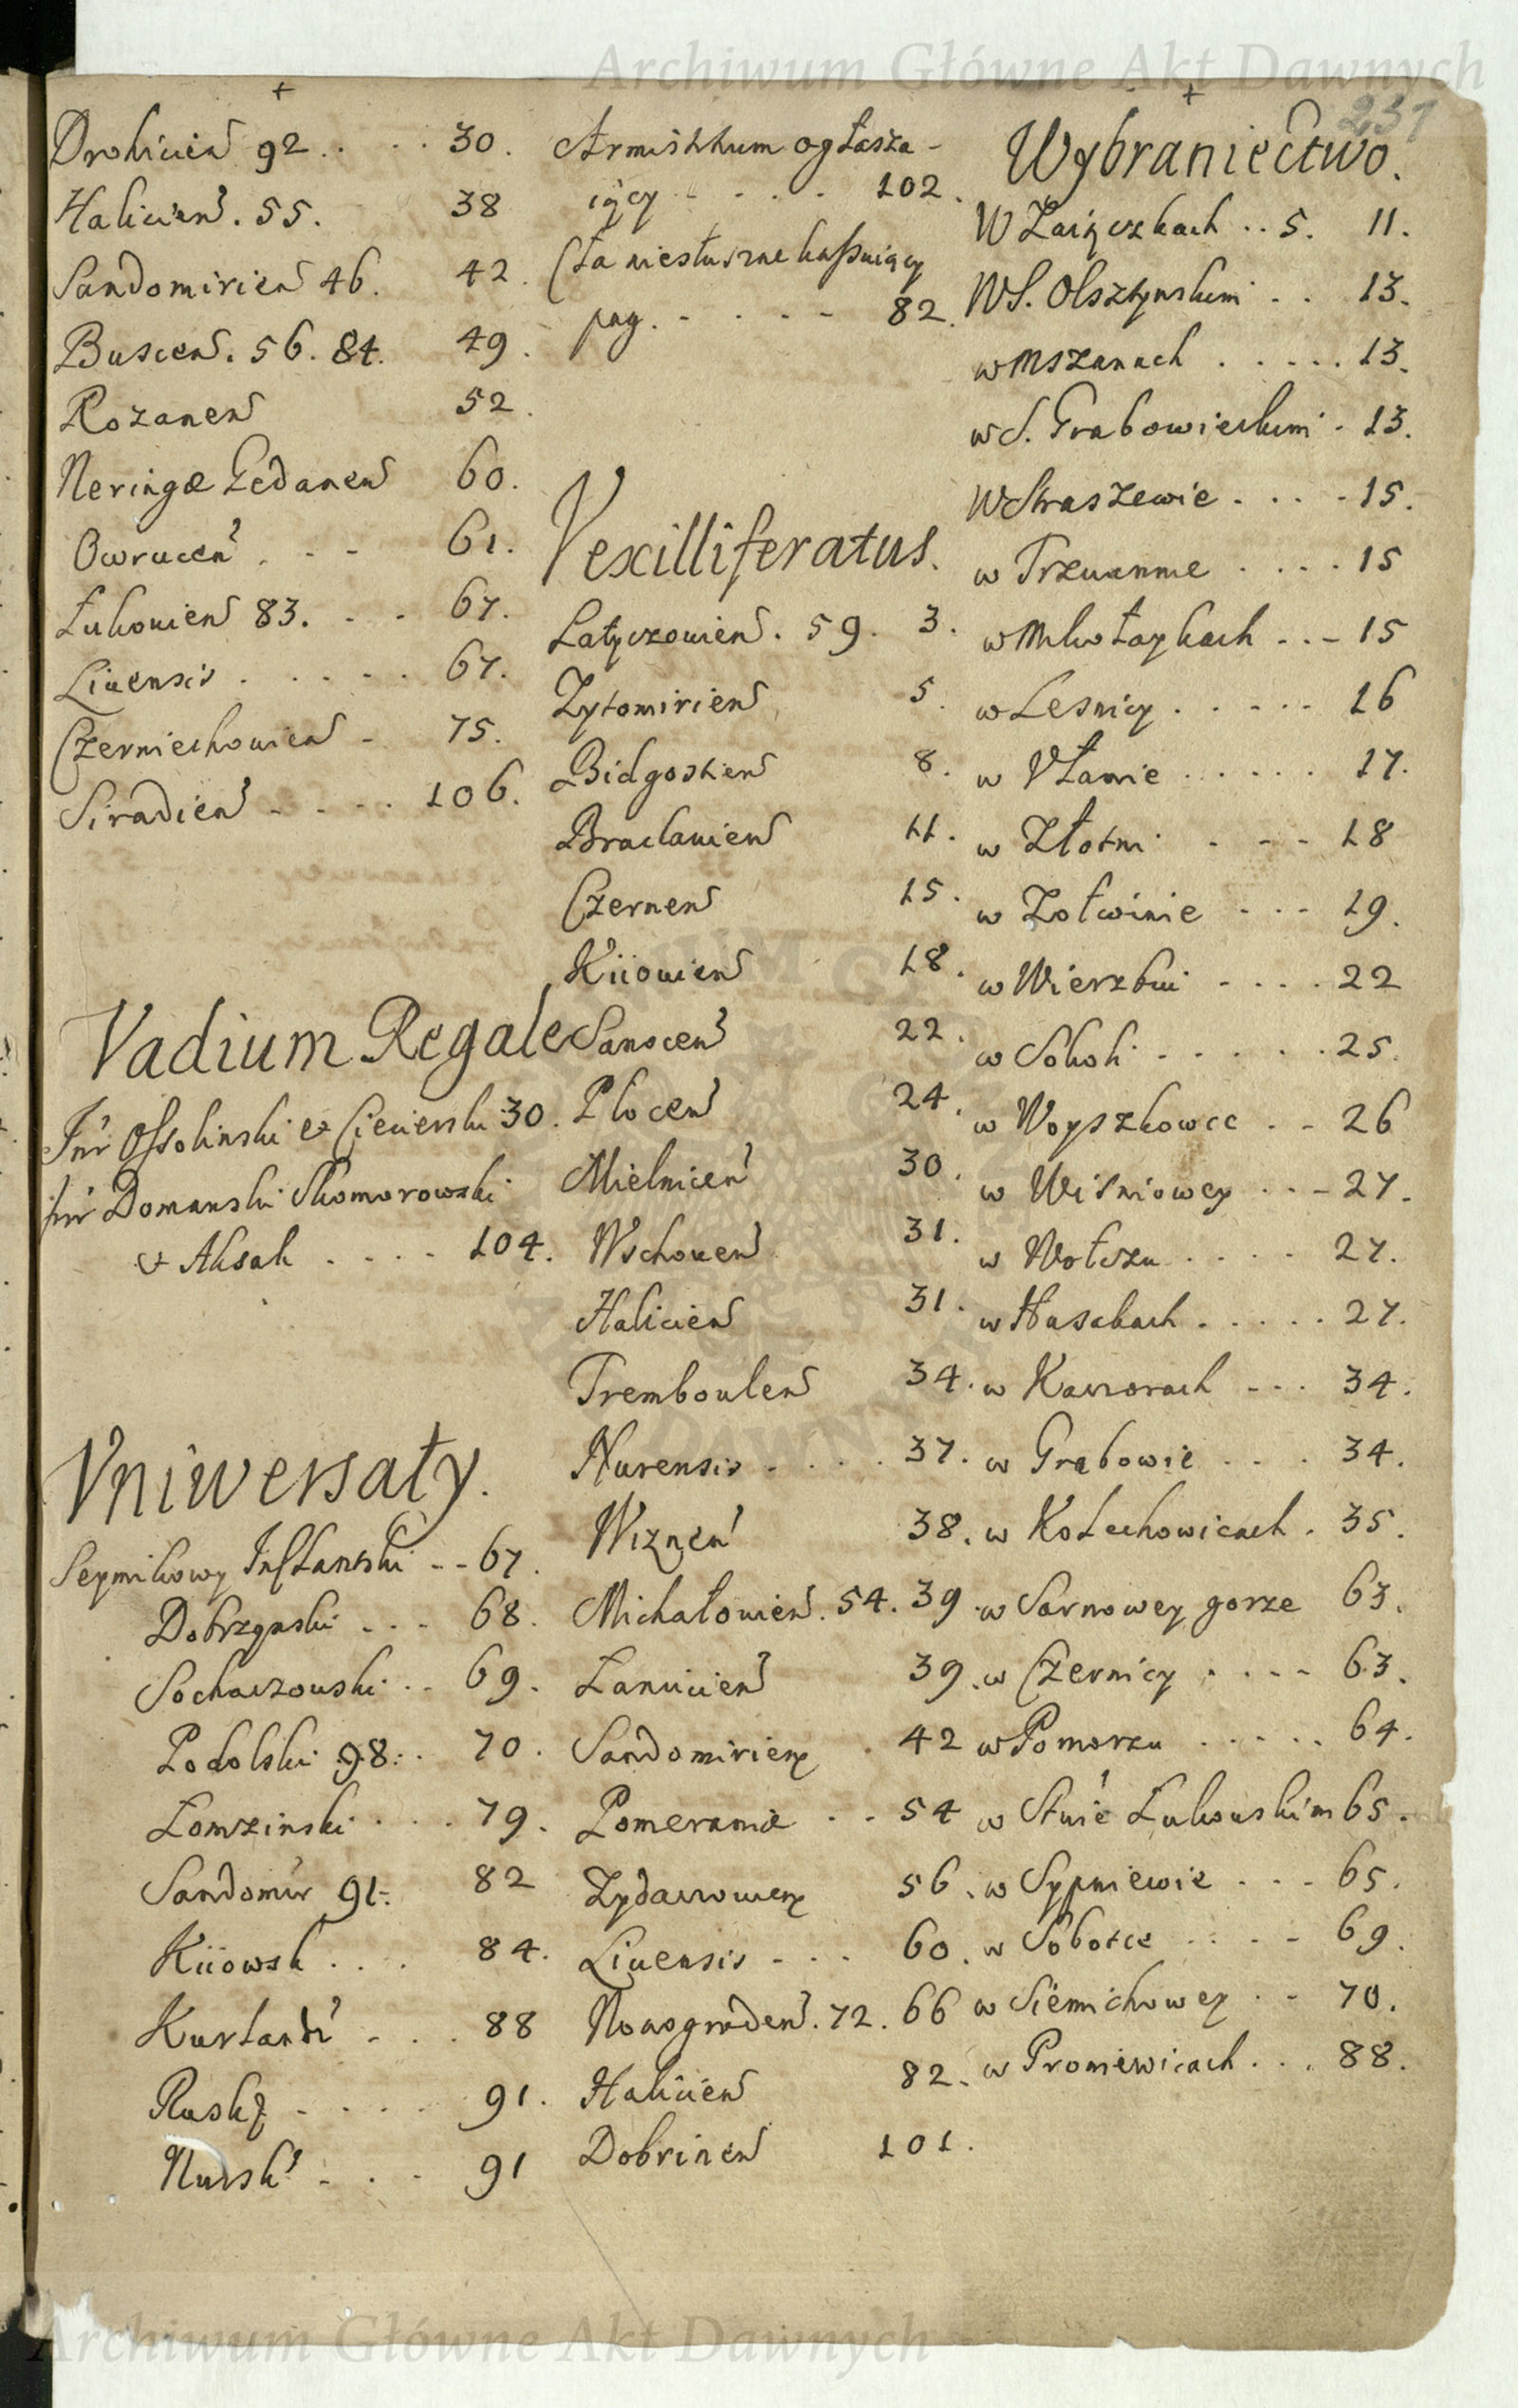 Archiwum Główne Akt Dawnych
231
Drohicien 92 . . . . 30.
Halicien. 55. 38
Sandomirien 46. 42.
Buscen. 56. 84. 49.
Rozanen 52.
Neringæ Gedanen 60.
Owrucen . - - 61.
Łukowien 83. - - . 67.
Livensis . . . . . 67.
Czerniechowien - 75.
Siradien - . . . . 106.
Vadium Regale
Inr Ossolinski et Ciecierski 30.
Inr Domanski Skomorowski
et Aksak . . . . 104.
Vniwersały.
Seymikowy Inflantski - - 67.
Dobrzynski . . . 68.
Sochaczowski . . 69.
Podolski 98. . 70.
Lomzinski . . . 79.
Sandomir 91. 82
Kiiowsk . . . 84.
Kurlandz - . . 88
Ruskį - . . . 91.
Nursk - . . 91
Armistitium ogłasza-
iący - . . . 102.
Cła niesłuszne kassuiący
pag. - . . - 82.
Vexilliferatus.
Latyczowien. 59. 3.
Zytomirien 5.
Bidgostien 8.
Braclavien 11.
Czernen 15.
Kiiovien 18.
Sanocen 22.
Plocen 24.
Mielnicen 30.
Wschoven 31.
Halicien 31.
Trembowlen 34.
Nurensis . . . . 37.
Wiznen 38.
Michałovien. 54. 39.
Lanicien 39.
Sandomirien 42
Pomeraniæ . . 54
Zydaczowien 56.
Livensis - . . 60.
Nowogroden. 72. 66
Halicien 82.
Dobrinen 101.
Wybraniectwo.
W Zaiączkach . . 5. 11.
W S. Olsztynskim . . 13.
w Mszanach . . . . . 13.
w S. Grabowieckim . 13.
W Straszewie . . . . 15.
w Trzciannie . . . . 15
w Młotaykach . . . 15
w Lesnicy . . . . . 16
w Vłanie . . . . . . 17.
w Złotni . - - - 18
w Zołwinie - - - 19.
w Wierzbni - . . . 22
w Sokoli . . . . . 25.
w Woyszkowce . . 26
w Wisniowey . . - 27.
w Wołczu . . . . . 27.
w Husakach . . . . . 27.
w Kaczorach - . . 34.
w Grabowie . . . 34.
w Kotechowicach . 35.
w Sarnowey gorze 63.
w Czernicy . . . . 63.
w Pomorzu . . . . . 64.
w Stwie Łukowskim 65.
w Sypniewie . . . 65.
w Sobotce . . . . 69.
w Siemichowey . . 70.
w Promiewicach . . . 88.
Archiwum Główne Akt Dawnych